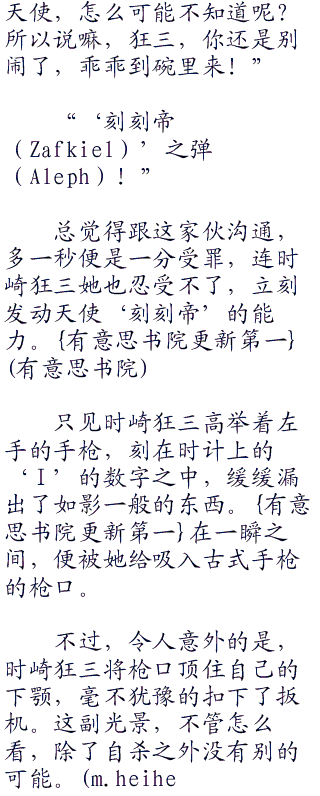 天使，怎么可能不知道呢？
所以说嘛，狂三，你还是别
闹了，乖乖到碗里来！”
“‘刻刻帝
（Zafkiel）’之弹
（Aleph）！”
总觉得跟这家伙沟通，
多一秒便是一分受罪，连时
崎狂三她也忍受不了，立刻
发动天使‘刻刻帝’的能
力。{有意思书院更新第一}
(有意思书院)
只见时崎狂三高举着左
手的手枪，刻在时计上的
‘I’的数字之中，缓缓漏
出了如影一般的东西。{有意
思书院更新第一}在一瞬之
间，便被她给吸入古式手枪
的枪口。
不过，令人意外的是，
时崎狂三将枪口顶住自己的
下颚，毫不犹豫的扣下了扳
机。这副光景，不管怎么
看，除了自杀之外没有别的
可能。(m.heihe